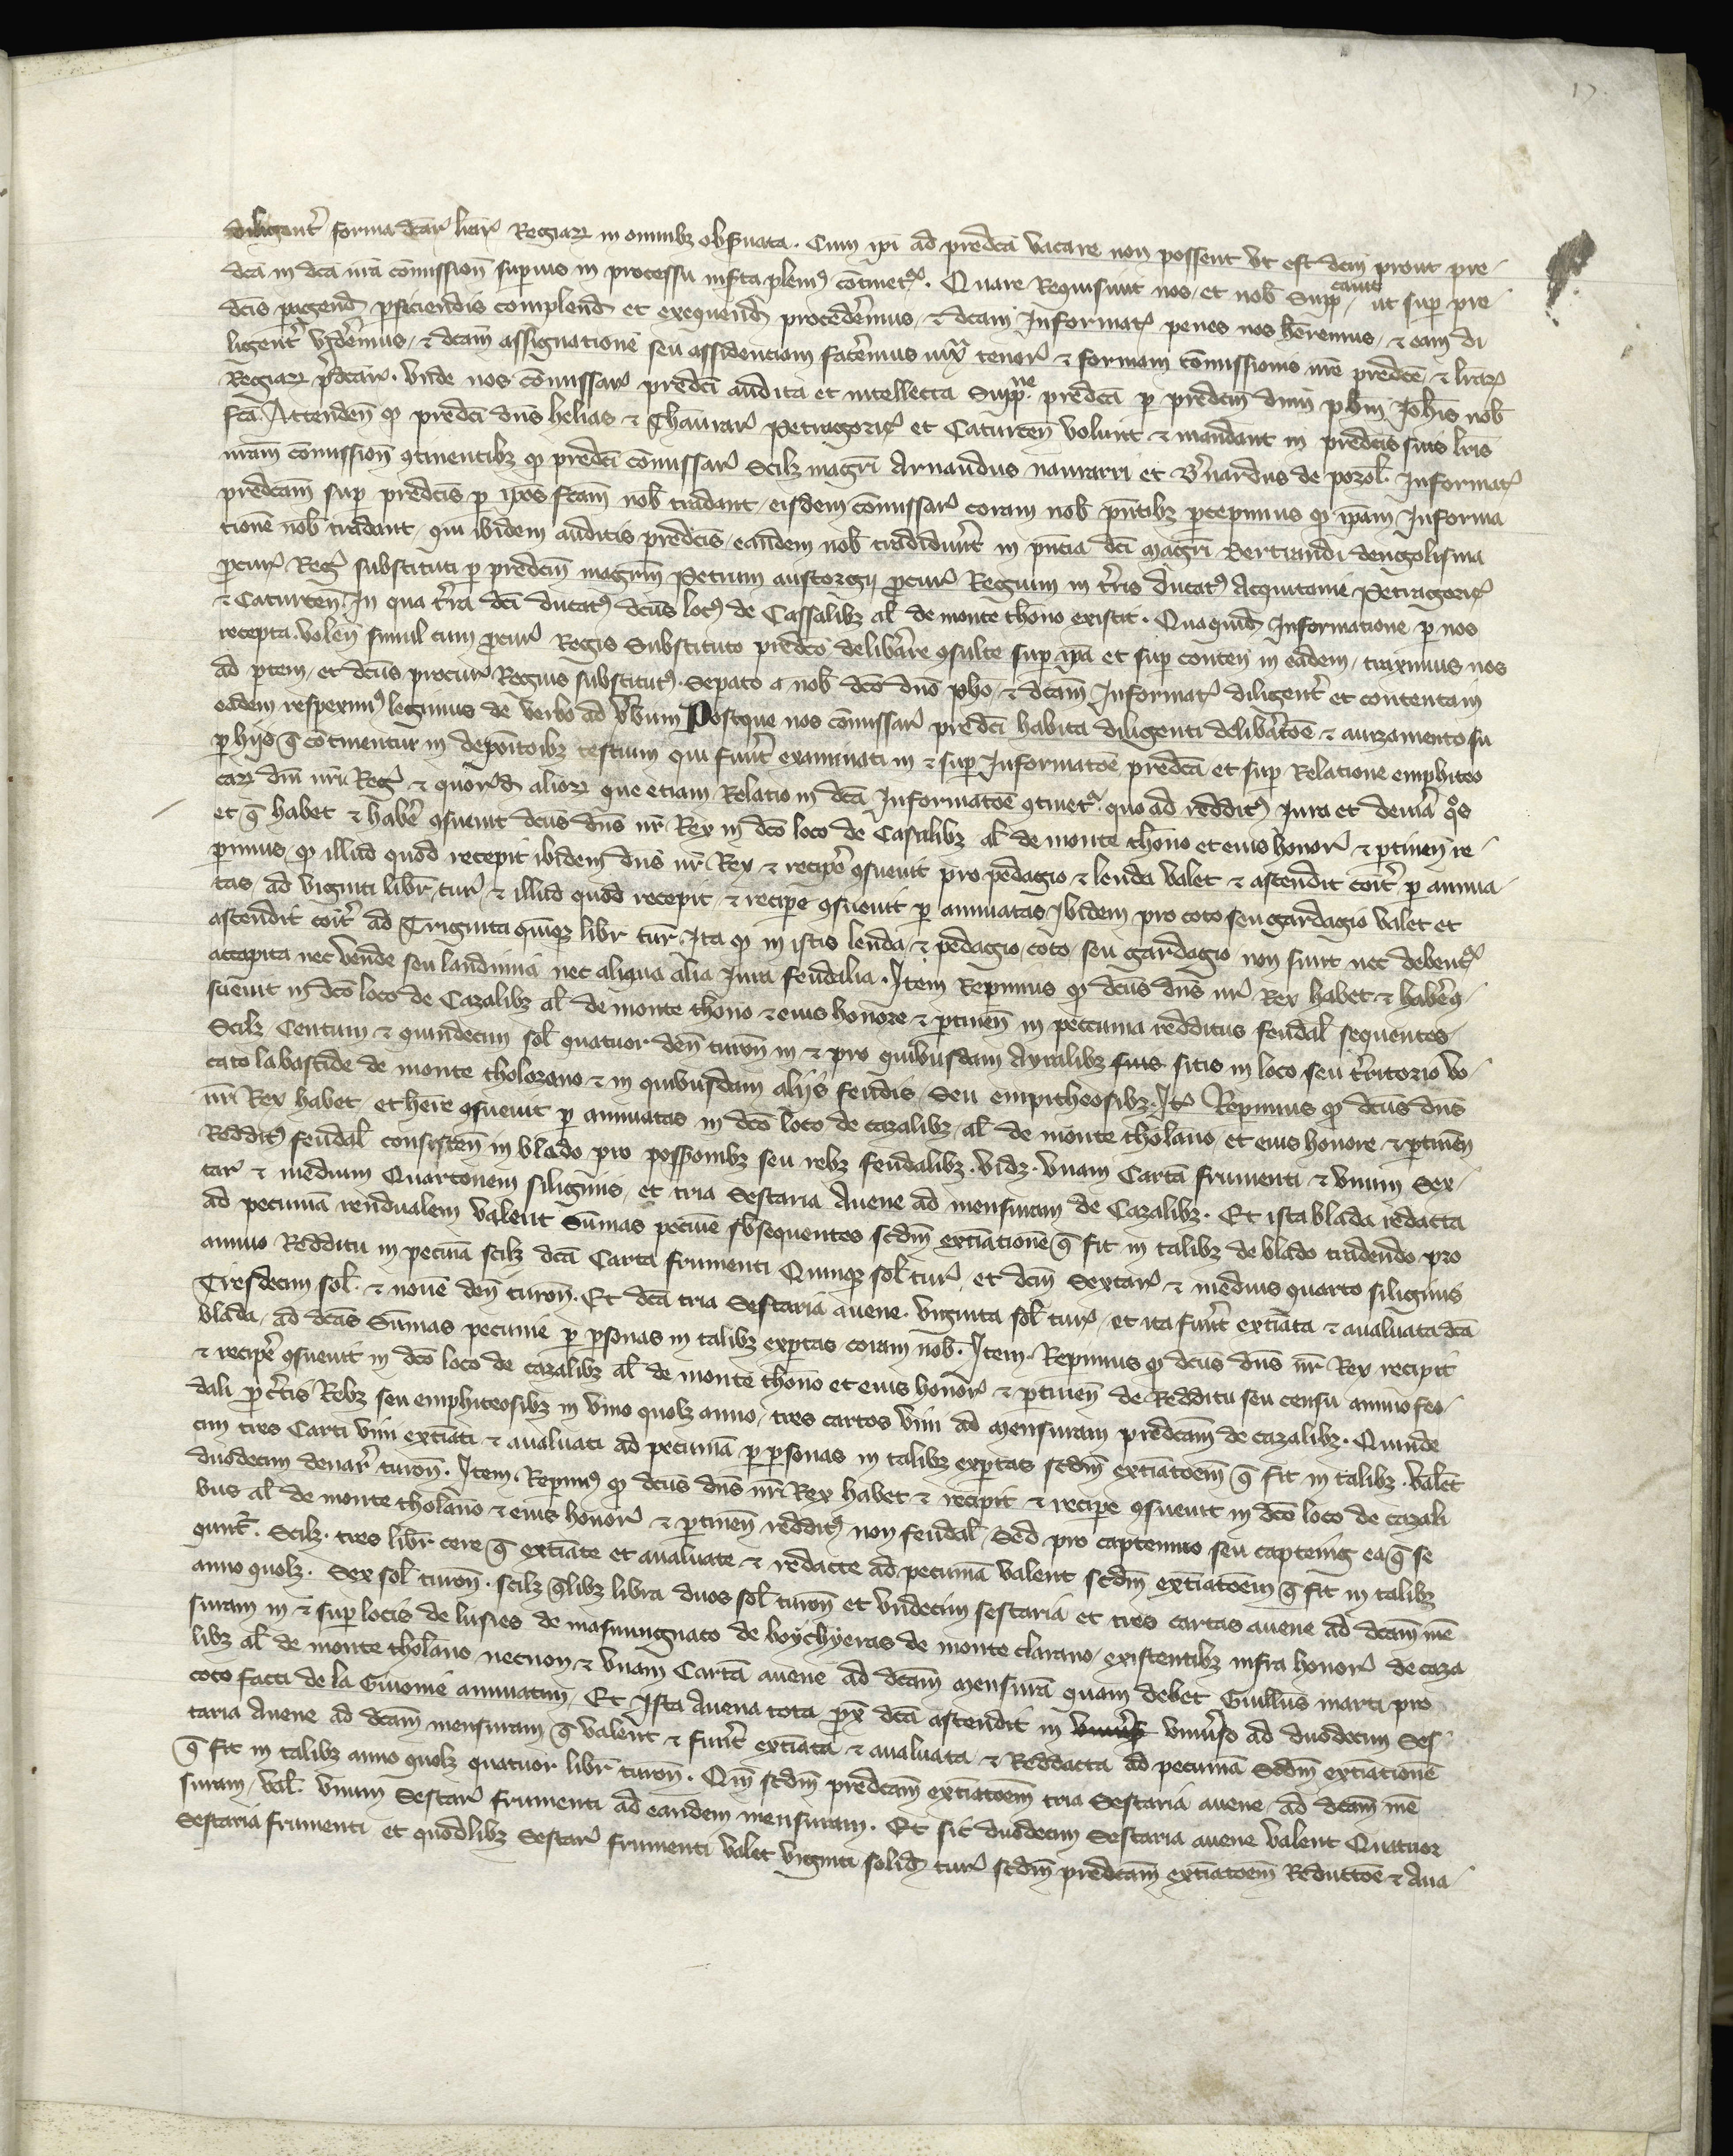 17.
diligent̃ forma dc̃ar̃ litt̃ar̃ Regiaꝝ in omnibꝫ obs̃uata. Cum ip̃i ad predc̃a vacare non possent vt est dc̃m prout pre-
dc̃a in dc̃a nr̃a comission̄ superius in processu inserta pleniꝰ cõtinet᷑. Quare Requisiuit nos et nob̃ Supp caueᷓ ut suꝑ pre-
dc̃is ꝑagend̃ ꝑficiendis complend̃ et exequend̃ procederemus, & dc̃am Informat̃ penes nos h̃eremus, & eam di
ligent̃ viderem̃us, & dc̃am assignatione seu assidenciam facẽremus iux̃ tenor̃ & formam com̃issionis nr̃e predc̃e, & lr̃aꝝ
Regiaꝝ p̃dc̃aꝝ. vnde nos comissar̃ predc̃i audita et intellecta Supp̃ne predc̃a ꝑ predc̃m dnm̃ ph̃m Joh̃is nob̃
fc̃a. Attenden̄ qꝫ predc̃i dn̄s helias & Thaurar̃ Petragoric̃ et Caturcen̄ volunt & mandant in predc̃is suis lr̃is
nr̃am comission̄ ꝯtinentibꝫ qꝫ predc̃i comissar̃ Scilꝫ magr̃i Arnaudus nauarri et B̃nardus de pozol̃ Informat̃
predc̃am suꝑ predc̃is ꝑ ip̃os fc̃am nob̃ tradant, eisdem comissar̃ coram nob̃ pñtibꝫ p̃cepimus qꝫ ip̃am Informa
tionẽ nob̃ tradant, qui ibidem auditis predc̃is, eandem nob̃ tradiderũt in pñcia dc̃i magr̃i Bertrandi dengolisma
ꝓcur̃ Reg̃ substituti ꝑ predc̃m magr̃m Petrum austorgii ꝓcur̃ Regium in tr̃is ducatꝰ Acquitanie Petragoric̃
& Caturcen̄ In qua tr̃a dc̃i ducatꝰ dc̃us locꝰ de Cassalibꝫ al̃ de monte thono existit. Quaquid̃ Informatione ꝑ nos
recepta. volen̄ simul cum ꝓcur̃ Regis Substituto predc̃o delib̃are ꝯsulte suꝑ ip̃a et suꝑ conten̄ in eadem, traximus nos
ad ꝑtem, et dc̃us procur̃ Regius substitutꝰ. Sep̃ato a nob̃ dc̃o dño ph̃o, & dc̃am Informat̃ diligent̃ et contentam
eadem respeximꝰ legimus de verbo ad ṽbum Postque nos comissar̃ predc̃i habita diligenti delib̃atõe & auizamento su
ꝑ hijs q̃ continentur in depõitoibꝫ testium qui fuũt examinati in & suꝑ Informatõe predc̃a et suꝑ Relatione emphiteo
caꝝ dñi nr̃i Reg̃ & quor̃d̃ alioꝝ que etiam Relatio in dc̃a Informatõe ꝯtinet᷑ quo ad redditꝰ Jura et deueria q̃s
et q̃ habet & habẽ ꝯsueuit dc̃us dñs nr̃ Rex in dc̃o loco de Casalibꝫ al̃ de monte thono et eius honor̃ & ꝑtinen̄ re-
ꝑimus qꝫ illud quod recepit ibidem dñs nr̃ Rex & recipe ꝯsueuit pro pedagio & lenda valet & ascendit cõit̃ ꝑ annua-
tas ad viginti libr̃ tur̃, & illud quod recepit & recipe ꝯsueuit ꝑ annuatas Ibidem pro coto seu gardagio valet et
ascendit cõit̃ ad Triginta quinqꝫ libr̃ tur̃ Ita qꝫ in istis lenda & pedagio, coto, seu gardagio non sunt nec debent᷑
accapita nec vende seu laudimia nec aliqua alia Jura feudalia. Item Repimus qꝫ dc̃us dñs nr̃ Rex habet & habẽ ꝯ-
sueuit in dc̃o loco de Cazalibꝫ al̃ de monte thono & eius honore & ꝑtinen̄ in peccunia redditus feudal̃ sequentes,
Scilꝫ, Centum & quindecim sol̃ quatuor den̄ turon̄ in & pro quibusdam Ayralibꝫ suis sitis in loco seu tr̃ritorio vo-
cato labastide de monte tholozano & in quibusdam alijs feudis, Seu empitheosibꝫ. Itẽ Repimus qꝫ dc̃us dñs
nr̃ Rex habet, et her̃e ꝯsueuit ꝑ annuatas in dc̃o loco de cazalibꝫ, al̃ de monte tholano, et eius honore & ꝑtinen̄
Redditꝰ feudal̃ consisten̄ in blado pro poss̃onibꝫ seu rebꝫ feudalibꝫ. vidꝫ. vnam Cartã frumenti & vnum Sex-
tar̃ & medium Quartonem siliginis, et tria Sestaria Auene ad mensuram de Cazalibꝫ. Et ista blada redacta
ad pecuniã rendualem valent Sũmas pecuñie sb̃sequentes scdm̃ extimationẽ q̃ fit in talibꝫ de blado tradendo pro
annuo Redditu in pecũia scilꝫ dc̃a Carta frumenti Quinqꝫ sol̃ tur̃, et dc̃m Sextar̃ & medius quarto siliginis
Tresdecim sol̃ & nouẽ den̄ turon̄. Et dc̃a tria Sestaria auene. viginta sol̃ tur̃, et ita fuũt extimata & aualuata dc̃a
blada, ad dc̃as Sũmas pecunie ꝑ ꝑsonas in talibꝫ exꝑtas coram nob̃. Item Repimus qꝫ dc̃us dñs nr̃ Rex recipit
& recipẽ ꝯsueuit in dc̃o loco de cazalibꝫ al̃ de monte thono et eius honor̃ & ꝑtinen̄ de Redditu seu censu annuo feo-
dali ꝓ c̃tis Rebꝫ seu emphiteosibꝫ in vino quolꝫ anno, tres cartos vini ad mensuram predc̃am de cazalibꝫ. Quinde
cim tres Carti vini extimati & aualuati ad pecuniã ꝑ ꝑsonas in talibꝫ exꝑtas scdm̃ extimatõem q̃ fit in talibꝫ. valet̃
duodecim denar̃ turon̄. Item. Repimꝰ qꝫ dc̃us dñs nr̃ Rex habet & recipit & recipe ꝯsueuit in dc̃o loco de cazali
bus al̃ de monte tholano & eius honor̃ & ꝑtinen̄ redditꝰ non feudal̃ Sed pro captennio seu capteing ea q̃ se
qunt᷑. Scilꝫ. tres libr̃ cere q̃ extimate et aualuate & redacte ad pecuniã valent scdm̃ extimatõem q̃ fit in talibꝫ
anno quolꝫ. Sex sol̃ turon̄. scilꝫ q̃libꝫ libra duos sol̃ turon̄ et vndecim sestaria et tres cartas auene ad dc̃am mẽ
suram in & suꝑ locis de lusies de masmmgnato de boychyeras de monte clarano, existentibꝫ infra honor̃ de caza
libꝫ al̃ de monte tholano necnon & vnam Cartã auene ad dc̃am mensurã quam debet Guill̃us marti pro
coto facti de la Guionie annuatim, Et Ista Auena tota prox̃ dc̃a ascendit in vniũs̃ vniũso ad duodecim Ses-
taria Auene ad dc̃am mensuram q̃ valer̃nt & fuũt extimata & aualuata & Reddacta ad pecuniã Scdm̃ extimationẽ
q̃ fit in talibꝫ anno quolꝫ quatuor libr̃ turon̄. Qm̃ scdm̃ predc̃am extimatõem tria Sestaria auene, ad dc̃am mẽ
suram, val̃. vnum Sestar̃ frumenti ad eandem mensuram. Et sic duodecim Sestaria auene valent Quatuor
Sestaria frumenti et quodlibꝫ Sestar̃ frumenti valet viginti solid̃ tur̃ scdm̃ predc̃am extimatõem Reductõe & Aua-